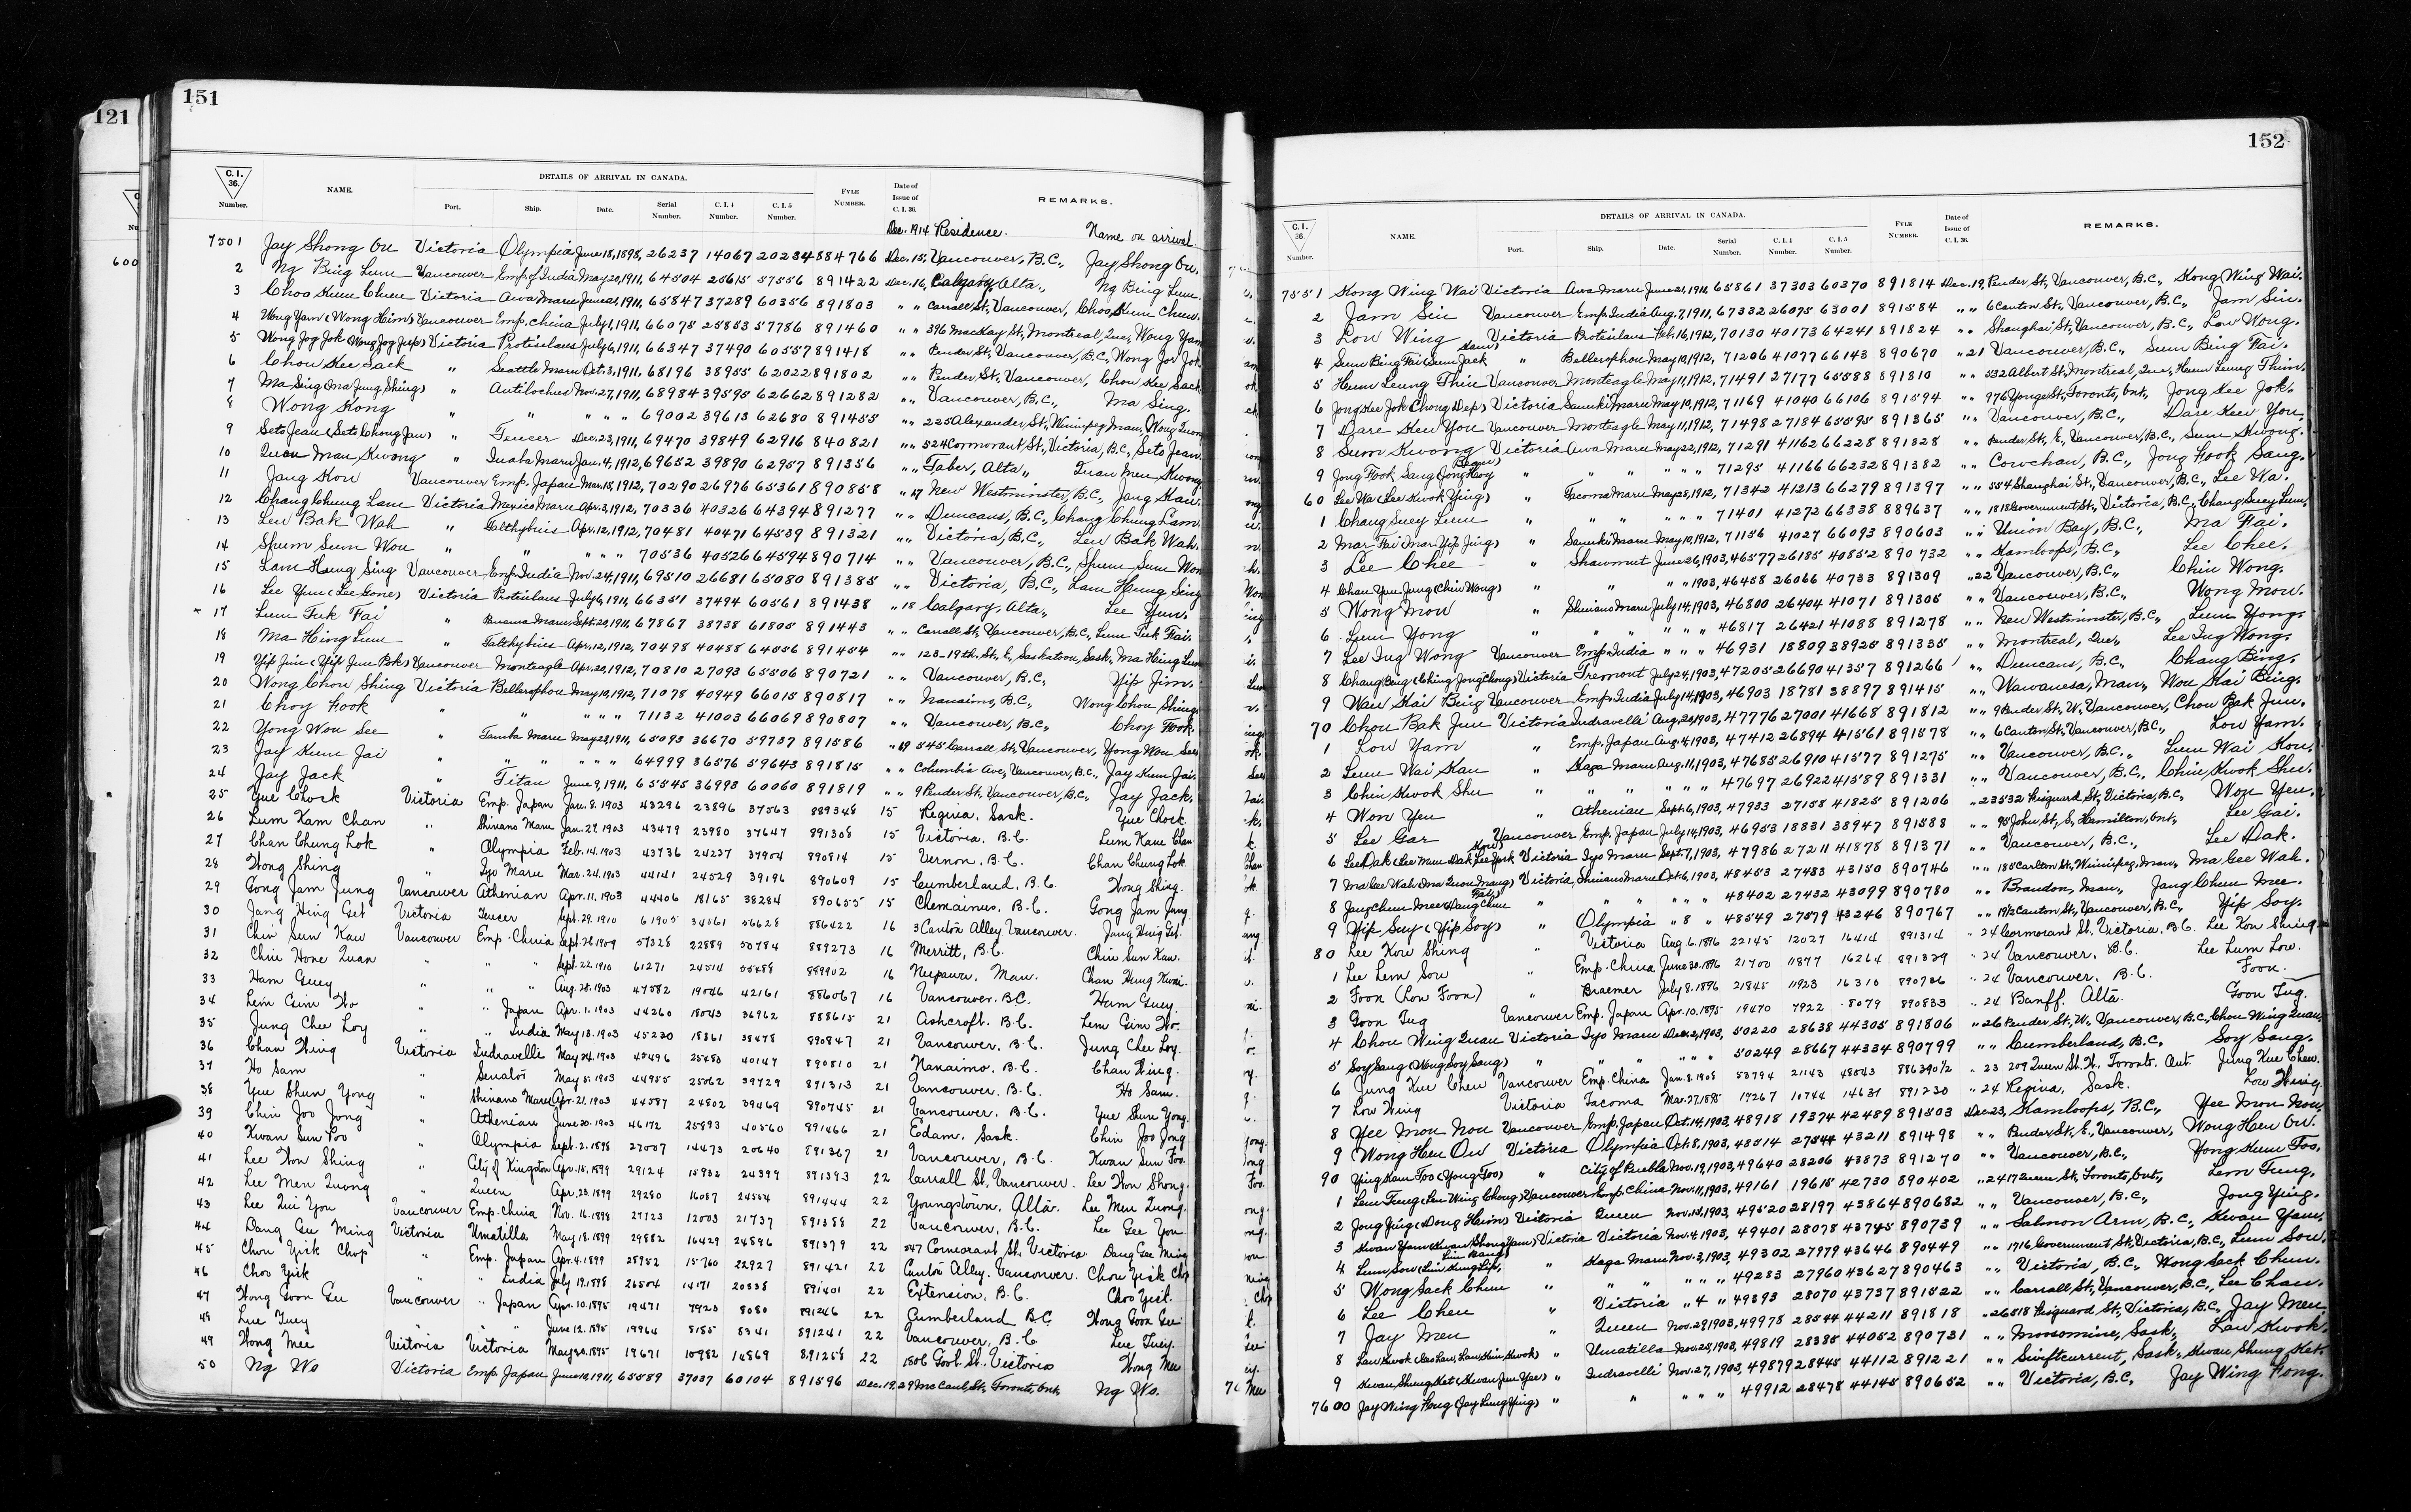 121
151
C.I. 36. Number.
NAME.
DETAILS OF ARRIVAL IN CANADA.
Port. Ship. Date. Serial Number. C.I.4 Number. C.I.5 Number.
FYLE NUMBER.
Date of Issue of C.I.36.
REMARKS.
Dec. 1914 Residence. Name on arrival
7501 Jay Shong On Victoria Olympia June 18, 1898, 26237 14067 20234 884766 Dec. 15, Vancouver, B.C., Jay Shong On.
2 Ng Bing Lum Vancouver Emp. of India May 20, 1911, 64504 25615 57556 891422 Dec. 16, Calgary, Alta., Ng Bing Lum.
3 Choo Kum Chuen Victoria Awa Maru June 21, 1911, 65847 37289 60356 891803 " " Carrall St., Vancouver, Choo Kum Chuen.
4 Wong Yam (Wong Him) Vancouver Emp. China July 1, 1911, 66075 25853 57786 891460 " " 396 MacKay St., Montreal, Que., Wong Yam
5 Wong Jog Jok (Wong Jog Jup) Victoria Protesilaus July 6, 1911, 66347 37490 60557 891418 " " Pender St., Vancouver, B.C., Wong Jor Jok
6 Chou Kee Sack " Seattle Maru Oct. 3, 1911, 68196 38955 62022 891802 " " Pender St., Vancouver, Chou Kee Sack
7 Ma Sing (Ma Jung Shing) " Antilochus Nov. 27, 1911, 68984 39595 62662 891282 " " Vancouver, B.C., Ma Sing.
8 Wong Kong " " " " " 69002 39613 62680 891455 " " 225 Alexander St., Winnipeg, Man.,
9 Seto Jean (Seto Chong Jan) " Teucer Dec. 23, 1911, 69470 39849 62916 840821 " " 524 Cormorant St., Victoria, B.C., Seto Jean.
10 Quon Man Kwong " Inaba Maru Jan. 4, 1912, 69652 39890 62957 891356 " " Taber, Alta.,
11 Jang Kou Vancouver Emp. Japan Mar. 15, 1912, 70290 26976 65361 890858 " 17 New Westminster, B.C., Jang Kau.
12 Chang Chung Lam Victoria Mexico Maru Apr. 3, 1912, 70336 40326 64394 891277 " " Duncans, B.C., Chang Chung Lam.
13 Leu Bak Wah " Talthybius Apr. 12, 1912, 70481 40471 64539 891321 " " Victoria, B.C., Leu Bak Wah.
14 Shum Sum Wou " " " " " 70536 40526 64594 890714 " " Vancouver, B.C., Shum Sum Wou
15 Lam Hung Sing Vancouver Emp. India Nov. 24, 1911, 69510 26681 65080 891385 " " Victoria, B.C., Lam Hung Sing
16 Lee Yun (Lee Lone) Victoria Protesilaus July 6, 1911, 66351 37494 60561 891438 " 18 Calgary, Alta., Lee Yun.
17 Lum Tuk Fai " Panama Maru Sept. 20, 1911, 67867 38738 61805 891443 " " Carrall St., Vancouver, B.C., Lum Tuk Fai.
18 Ma Hing Lum " Talthybius Apr. 12, 1912, 70498 40488 64556 891454 " " 123-19th. St., E., Saskatoon, Sask., Ma Hing Lum
19 Yip Jim (Yip Jim Bok) Vancouver Monteagle Apr. 20, 1912, 70810 27093 65506 890721 " " Vancouver, B.C., Yip Jim.
20 Wong Chou Shing Victoria Bellerophon May 10, 1912, 71078 40949 66015 890817 " " Nanaimo, B.C., Wong Chou Shing.
21 Choy Fook " " " " " 71132 41003 66069 890807 " " Vancouver, B.C., Choy Fook.
22 Yong Wou See " Tamba Maru May 23, 1911, 65093 36670 59737 891586 " 19 545 Carrall St., Vancouver, Yong Wou See
23 Jay Kum Jai " " " " " " 64999 36576 59643 891815 " " Columbia Ave., Vancouver, B.C., Jay Kum Jai.
24 Jay Jack " Titan June 9, 1911, 65545 36993 60060 891819 " " 9 Pender St., Vancouver, B.C., Jay Jack.
25 Yue Chock Victoria Emp. Japan Jan. 8. 1903 43296 23896 37563 889348 15 Regina, Sask. Yue Chock.
26 Lum Kam Chan " Shinano Maru Jan. 27. 1903 43479 23980 37647 891308 15 Victoria. B.C. Lum Kam Chan
27 Chan Chung Lok " Olympia Feb. 14. 1903 43736 24237 37904 890814 15 Vernon. B.C. Chan Chung Lok.
28 Wong Shing " Iyo Maru Mar. 24. 1903 44141 24529 39196 890609 15 Cumberland. B.C. Wong Shing.
29 Gong Jam Jung Vancouver Athenian Apr. 11. 1903 44406 18165 38284 890655 15 Chemainus. B.C. Gong Jam Jung
30 Jang Hing Get Victoria Teucer Sept. 29. 1910 61905 34561 56628 886422 16 3 Canton Alley Vancouver. Jang Hing Get.
31 Chin Sun Kau Vancouver Emp. China Sept. 28. 1909 57328 22889 50784 889273 16 Merritt, B.C. Chin Sun Kau.
32 Chin Hone Quan " " " Sept. 22. 1910 61271 24514 55488 889902 16 Neepawa, Man. Chan Hung Kuni.
33 Ham Guey " " " Aug. 28. 1903 47582 19046 42161 886067 16 Vancouver. B.C. Ham Guey.
34 Lem Gim Wo " " Japan Apr. 1. 1903 44260 18043 36962 888615 21 Ashcroft. B.C. Lem Gim Wo.
35 Jung Chee Loy " " India May 13. 1903 45230 18361 38478 890847 21 Vancouver. B.C. Jung Chee Loy.
36 Chan Wing Victoria Indravelli May 24. 1903 45496 25480 40147 890810 21 Nanaimo. B.C. Chan Wing.
37 Ho Sam " Senator May 5. 1903 44955 25062 39729 891313 21 Vancouver. B.C. Ho Sam.
38 Yue Shun Yong " Shinano Maru Apr. 21. 1903 44587 24802 39469 890745 21 Vancouver. B.C. Yue Shun Yong.
39 Chin Joo Jong " Athenian June 20. 1903 46172 25893 40560 891466 21 Edam, Sask. Chin Joo Jong
40 Kwan Sun Foo " Olympia Sept. 2. 1898 27007 14473 20640 891367 21 Vancouver, B.C. Kwan Sun Foo.
41 Lee Won Shing " City of Kingston Apr. 15. 1899 29124 15982 24399 891393 22 Carrall St. Vancouver. Lee Won Shong.
42 Lee Men Quong " Queen Apr. 23. 1899 29280 16087 24554 891444 22 Youngstown, Alta. Lee Men Quong.
43 Lee Qui You Vancouver Emp. China Nov. 16. 1898 27723 12003 21737 891388 22 Vancouver, B.C. Lee Gee You
44 Dang Gee Ming Victoria Umatilla May 18. 1899 29882 16429 24896 891379 22 547 Cormorant St. Victoria. Dang Gee Ming
45 Chou Yick Chop " Emp. Japan Apr. 4. 1899 28952 15760 22927 891421 22 Canton Alley. Vancouver. Chou Yick Chop
46 Choo Yick " " India July 19. 1898 26504 14171 20338 891401 22 Extension, B.C. Choo Yick.
47 Wong Goon Gee Vancouver " Japan Apr. 10. 1895 19471 7923 8080 891246 22 Cumberland B.C. Wong Goon Gee
48 Lue Tuey " " " June 12. 1895 19964 8185 8341 891241 22 Vancouver, B.C. Lue Tuey.
49 Wong Mee Victoria Victoria May 20. 1895 19671 10982 14869 891258 22 1806 Govt. St. Victoria Wong Mee
50 Ng Wo Victoria Emp. Japan June 10, 1911, 65589 37037 60104 891596 Dec. 19, 29 McCaul St., Toronto, Ont. Ng Wo.
152
C.I. 36. Number.
NAME.
DETAILS OF ARRIVAL IN CANADA.
Port. Ship. Date. Serial Number. C.I.4 Number. C.I.5 Number.
FYLE NUMBER.
Date of Issue of C.I.36.
REMARKS.
7551 Kong Wing Wai Victoria Awa Maru June 21, 1911, 65861 37303 60370 891814 Dec. 19, Pender St., Vancouver, B.C., Kong Wing Wai.
2 Jam Sin Vancouver Emp. India Aug. 7, 1911, 67332 26075 63001 891584 " " 6 Canton St., Vancouver, B.C., Jam Sin.
3 Low Wing Victoria Protesilaus Feb. 16, 1912, 70130 40173 64241 891824 " " Shanghai St., Vancouver, B.C., Low Wong.
4 Sum Bing Fai (Sum Jack Kam) " Bellerophon May 10, 1912, 71206 41077 66143 890670 " 21 Vancouver, B.C., Sum Bing Fai.
5 Hum Leung Thin Vancouver Monteagle May 11, 1912, 71491 27177 65588 891810 " " 532 Albert St., Montreal, Que., Hum Leung Thim.
6 Jong Kee Jok (Chong Dep) Victoria Sanuki Maru May 10, 1912, 71169 41040 66106 891594 " " 976 Yonge St., Toronto, Ont., Jong Kee Jok.
7 Dare Keu You Vancouver Monteagle May 11, 1912, 71498 27184 65595 891365 " " Vancouver, B.C., Dare Keu You.
8 Sum Kwong Victoria Awa Maru May 22, 1912, 71291 41162 66228 891828 " " Pender St., E., Vancouver, B.C., Sum Kwong.
9 Jong Fook Sang " " " " " " 71295 41166 66232 891382 " " Cowchan, B.C., Jong Fook Sang.
60 Lee Wa (Lee Kwok Ying) " Tacoma Maru May 28, 1912, 71342 41213 66279 891397 " " 554 Shanghai St., Vancouver, B.C., Lee Wa.
1 Chang Suey Lum " " " " " " 71401 41272 66338 889637 " " 1818 Government St., Victoria, B.C., Chang Suey Lum.
2 Mar Fai (Mar Yip Jing) " Sanuki Maru May 10, 1912, 71156 41027 66093 890603 " " Union Bay, B.C., Ma Fai.
3 Lee Chee " Shawmut June 26, 1903, 46577 26185 40852 890732 " " Kamloops, B.C., Lee Chee.
4 Chan You Jung (Chin Wong) " " " " 1903, 46458 26066 40733 891309 " 22 Vancouver, B.C., Chin Wong.
5 Wong Mou " Shinano Maru July 14, 1903, 46800 26404 41071 891305 " " Vancouver, B.C., Wong Mou.
6 Lum Yong " " " " " " 46817 26421 41088 891278 " " New Westminster, B.C., Lum Yong.
7 Lee Ing Wong Vancouver Emp. India " " " 46931 18809 38925 891335 " " Montreal, Que., Lee Ing Wong.
8 Chang Bing (Ching Jong Chong) Victoria Tremont July 24, 1903, 47205 26690 41357 891266 " " Duncans, B.C., Chang Bing.
9 Wau Kai Bing Vancouver Emp. India July 14, 1903, 46903 18781 38897 891415 " " Wawanesa, Man., Wou Kai Bing.
70 Chou Bak Jun Victoria Indravelli Aug. 20, 1903, 47776 27001 41668 891812 " " 9 Pender St., W., Vancouver, Chou Bak Jun.
1 Low Yam " Emp. Japan Aug. 4, 1903, 47412 26894 41561 891578 " " 6 Canton St., Vancouver, B.C., Low Yam.
2 Lum Wai Kau " Kaga Maru Aug. 11, 1903, 47685 26910 41577 891275 " " Vancouver, B.C., Lum Wai Kou.
3 Chin Kwok Shu " " " " " " 47697 26922 41589 891331 " " Vancouver, B.C., Chin Kwok Shu.
4 Won Yen " Athenian Sept. 6, 1903, 47933 27158 41825 891206 " 23 532 Fisguard St., Victoria, B.C., Won Yen.
5 Lee Gar Vancouver Emp. Japan July 14, 1903, 46953 18831 38947 891588 " " 95 John St., S., Hamilton, Ont., Lee Gai.
6 Lee Dak Victoria Iyo Maru Sept. 7, 1903, 47986 27211 41878 891371 " " Vancouver, B.C., Lee Dak.
7 Ma Gee Wah Victoria, Shinano Maru Oct. 6, 1903, 48453 27483 43150 890746 " " 185 Carlton St., Winnipeg, Man., Ma Gee Wah.
8 Jang Chun Mee " " " " " " 48402 27432 43099 890780 " " Brandon, Man., Jang Chun Mee.
9 Yip Suey (Yip Soy) " Olympia " 8 " 48549 27579 43246 890767 " " 19½ Canton St., Vancouver, B.C., Yip Soy.
80 Lee Kow Shing " Victoria Aug. 6. 1896 22145 12027 16414 891314 " 24 Cormorant St. Victoria. B.C. Lee Kon Shing
1 Lee Lem Sow " Emp. China June 30. 1896 21700 11877 16264 891329 " 24 Vancouver, B.C. Lee Lum Low.
2 Foon (Low Foon) " Braemer July 8. 1896 21845 11923 16310 890736 " 24 Vancouver, B.C. Foon.
3 Goon Tug Vancouver Emp. Japan Apr. 10. 1895 19470 7922 8079 890833 " 24 Banff. Alta. Goon Tug.
4 Chou Wing Quan Victoria Iyo Maru Dec. 2, 1903, 50220 28638 44305 891806 " 26 Pender St., W., Vancouver, B.C., Chou Wing Quan.
5 Soy Sang (Wong Soy Sang) " " " " " " 50249 28667 44334 890799 " " Cumberland, B.C., Soy Sang.
6 Jung Kue Chew Vancouver Emp. China Jan. 8. 1908 53794 21143 48043 886390½ " 23 209 Queen St. W. Toronto. Ont. Jung Kue Chew.
7 Low Wing Victoria Tacoma Mar. 27. 1895 19267 10744 14631 891230 " 24 Regina, Sask. Low Wing.
8 Yee Mon Nou Vancouver Emp. Japan Oct. 14, 1903, 48918 19374 42489 891503 Dec. 23, Kamloops, B.C., Yee Mon Nou.
9 Wong Hen On Victoria Olympia Oct. 8, 1903, 48514 27544 43211 891498 " " Pender St., E., Vancouver, Wong Hen On.
90 Ying Kam Foo (Yong Foo) " City of Puebla Nov. 19, 1903, 49640 28206 43873 891270 " " Vancouver, B.C., Yong Kum Foo.
1 Lem Tung (Lem Wing Chong) Vancouver Emp. China Nov. 11, 1903, 49161 19615 42730 890402 " 24 17 Queen St., Toronto, Ont., Lem Tung.
2 Jong Ying (Dong Hoim) Victoria Queen Nov. 15, 1903, 49520 28197 43864 890682 " " Vancouver, B.C., Jong Ying.
3 Kwan Yam (Kwan Shong Yam) Victoria Victoria Nov. 4, 1903, 49401 28078 43745 890739 " " Salmon Arm, B.C., Kwan Yam.
4 Lum Sow " Kaga Maru Nov. 3, 1903, 49302 27979 43646 890449 " " 1716 Government St., Victoria, B.C., Lum Sow.
5 Wong Sack Chun " " " " " " 49283 27960 43627 890463 " " Victoria, B.C., Wong Sack Chun.
6 Lee Chen " Victoria " 4 " 49393 28070 43737 891522 " " Carrall St., Vancouver, B.C., Lee Chan.
7 Jay Men " Queen Nov. 29, 1903, 49978 28544 44211 891818 " 26 518 Fisguard St., Victoria, B.C., Jay Men.
8 Lau Kwok " Umatilla Nov. 25, 1903, 49819 28385 44052 890731 " " Moosomine, Sask., Lau Kwok.
9 Kwan Shung Kat (Kwan Jun Yee) " Indravelli Nov. 27, 1903, 49879 28445 44112 891221 " " Swiftcurrent, Sask., Kwan Shung Kat.
7600 Jay Wing Fong (Jay Lung Ying) " " " " " 49912 28478 44145 890652 " " Victoria, B.C., Jay Wing Fong.